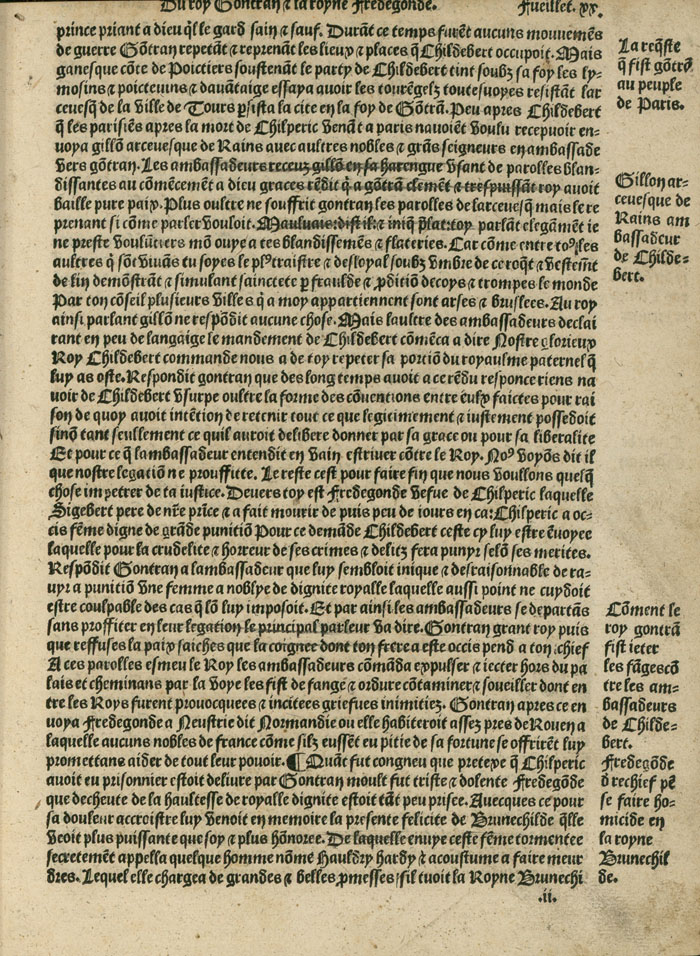 Du roy Gontran ⁊ la royne Fredegonde. Fueillet. xx.
prince priant a dieu q̃l le gard sain ⁊ sauf. Durãt ce temps furẽt aucuns mouuemẽs
de guerre Gõtran repetãt ⁊ reprenãt les lieux ⁊ places q̃ Childebert occupoit. Mais
ganesque cõte de Poictiers soustenãt le party de Childebert tint soubz sa foy les ly-
mosins ⁊ poicteuins ⁊ dauãtaige essaya auoir les tourẽgelz toutesuoyes resistãt lar
ceuesq̃ de la ville de Tours p̱sista la cite en la foy de Gõtrã. Peu apres Childebert
q̃ les parisiẽs apres la mort de Chilperic venãt a paris nauoiẽt voulu recepuoir en-
uoya gillõ arceuesque de Rains auec aultres nobles ⁊ grãs seigneurs en ambassade
vers gõtran. Les ambassadeurs receuz gillõ en sa harengue vsant de parolles blan-
dissantes au cõmẽcemẽt a dieu graces rẽdit q̃ a gõtrã clemẽt ⁊ trespuissãt roy auoit
baille pure paix. Plus oultre ne souffrit gontran les parolles de larceuesq̃ mais le re
prenant si cõme parler vouloit. Mauluais dist il ⁊ iniq̃ p̃lat toy parlãt elegãmẽt ie
ne preste voulũtiers mõ ouye a tes blandissemẽs ⁊ flateries. Car cõme entre toꝰ les
aultres q̃ sõt viuãs tu soyes le plꝰ traistre ⁊ desloyal soubz vmbre de ce roq̃t ⁊ vestemẽt
de lin demõstrãt ⁊ simulant sainctete p̱ fraulde ⁊ p̱ditiõ decoys ⁊ trompes le monde
Par ton cõseil plusieurs villes q̃ a moy appartiennent sont arses ⁊ bruslees. Au roy
ainsi parlant gillõ ne respõdit aucune chose. Mais laultre des ambassadeurs declai
rant en peu de langaige le mandement de Childebert cõmẽca a dire Nostre glorieux
Roy Childebert commande nous a de toy repeter sa portiõ du royaulme paternel q̃
luy as oste. Respondit gontran que des long temps auoit a ce rẽdu responce riens na
uoir de Childebert vsurpe oultre la forme des cõuentions entre eulx faictes pour rai
son de quoy auoit intẽtion de retenir tout ce que legitimement ⁊ iustement possedoit
sinõ tant seullement ce quil auroit delibere donner par sa grace ou pour sa liberalite
Et pour ce q̃ lambassadeur entendit en vain estriuer cõtre le Roy. Noꝰ voyõs dit il
que nostre legatiõ ne prouffitte. Le reste cest pour faire fin que nous voullons quelq̃
chose impetrer de ta iustice. Deuers toy est Fredegonde vefue de Chilperic laquelle
Sigebert pere de nr̃e prĩce ⁊ a fait mourir de puis peu de iours en ca: Chilperic a oc-
cis fẽme digne de grãde punitiõ Pour ce demãde Childebert ceste cy luy estre ẽuoyee
laquelle pour la crudelite ⁊ horreur de ses crimes ⁊ delitz fera punyr selõ ses merites.
Respõdit Gontran a lambassadeur que luy sembloit inique ⁊ desraisonnable de ra-
uyr a punitiõ vne femme a noblye de dignite royalle laquelle aussi point ne cuydoit
estre coulpable des cas q̃ lõ luy imposoit. Et par ainsi les ambassadeurs se departãs
sans proffiter en leur legation le principal parleur va dire. Gontran grant roy puis
que reffuses la paix saiches que la coignee dont ton frere a este occis pend a ton chief
A ces parolles esmeu le Roy les ambassadeurs cõmãda expulser ⁊ iecter hors du pa
lais et cheminans par la voye les fist de fange ⁊ ordure cõtaminer ⁊ soueiller dont en
tre les Roys furent prouocquees ⁊ incitees griefues inimitiez. Gontran apres ce en
uoya Fredegonde a Neustrie dit Normandie ou elle habiteroit assez pres de Rouen a
laquelle aucuns nobles de france cõme silz eussẽt eu pitie de sa fortune se offrirẽt luy
promettans aider de tout leur pouoir. ¶ Quãt fut congneu que pretexe q̃ Chilperic
auoit eu prisonnier estoit deliure par Gontran moult fut triste ⁊ dolente Fredegõde
que decheute de la haultesse de royalle dignite estoit tãt peu prisee. Auecques ce pour
sa douleur accroistre luy venoit en memoire la presente felicite de Brunechilde q̃lle
veoit plus puissante que soy ⁊ plus hõnoree. De laquelle enuye ceste fẽme tormentee
secretemẽt appella quelque homme nõme Hauldry hardy ⁊ acoustume a faire meur
dres. Lequel elle chargea de grandes ⁊ belles p̱messes / sil tuoit la Royne Brunechi
.ii.
La req̃ste
q̃ fist gõtrã
au peuple
de Paris.
Gillon ar-
ceuesque de
Rains am
bassadeur
de Childe-
bert.
Cõment le
roy gontrã
fist ieter
les fãges cõ
tre les am-
bassadeurs
de Childe-
bert.
Fredegõde
d rechief pẽ
se faire ho-
micide en
la royne
Brunechil
de.